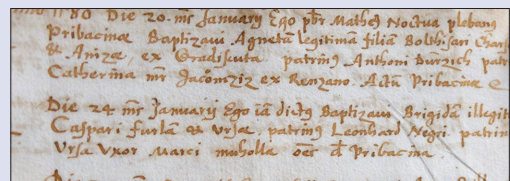 1580 Die 20. mēs Januarij Ego pbr Matheꝰ Noctua plebanꝰ
Pribacinæ Baptizavi Agnetam legitimam filiam Bolthisari
& Anizæ, ex Gradiscuta patrinꝰ Anthoni Burzich patr
Catherina mr̄ Jacomziz ex Renzano. Actū Pribacinæ
Die 24 mēs Januarij Ego iā dictꝰ Baptizavi Brigidam illegit
Caspari furlā & Ursæ, patrinꝰ Leonhard Negri patrin
Ursa Uxor Marci muholla oēs d Pribacina